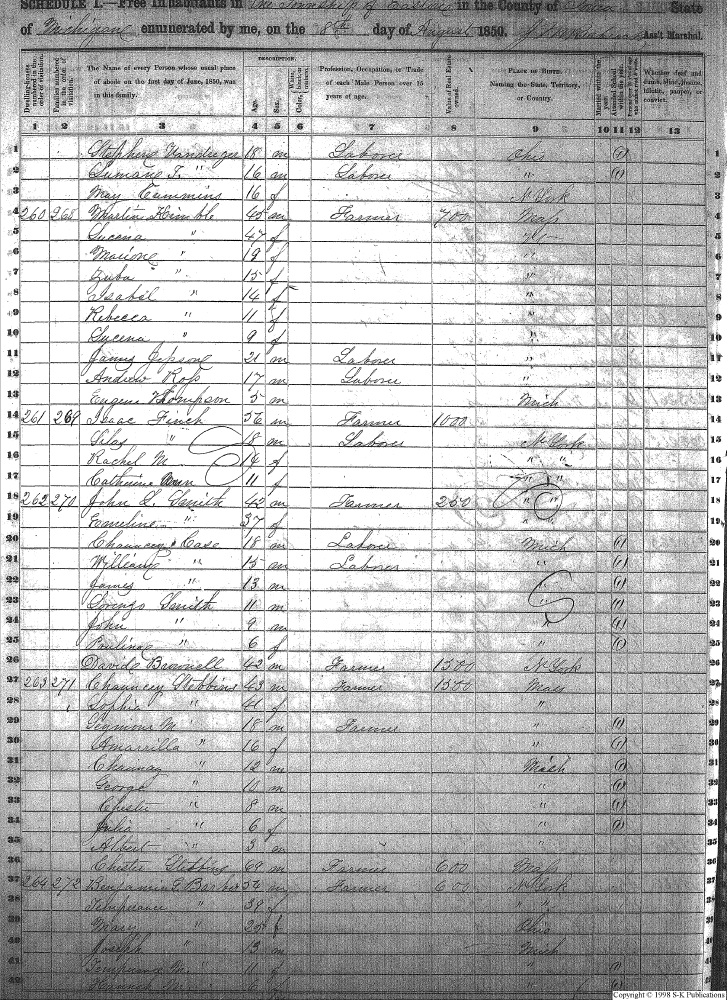 SCHEDULE I.—Free Inhabitants in The Township of in the County of State
of Michigan enumerated by me, on the 8th day of August 1850. Ass't Marshal.
Dwelling-houses numbered in the order of visitation.
Families numbered in the order of visitation.
The Name of every Person whose usual place of abode on the first day of June, 1850, was in this family.
DESCRIPTION.
Age.
Sex.
Color, White, black, or mulatto.
Profession, Occupation, or Trade of each Male Person over 15 years of age.
Value of Real Estate owned.
PLACE OF BIRTH. Naming the State, Territory, or Country.
Married within the year.
Attended School within the year.
Whether deaf and dumb, blind, insane, idiotic, pauper, or convict.
1 2 3 4 5 6 7 8 9 10 11 12 13
1 Stephen 18 m Laborer Ohio 1
2 " 16 m Laborer " 2
3 May Cummins 16 f N York 3
4 260 268 Martin Kimble 45 m Farmer 700 Mass 4
5 Lucena " 47 f 5
6 " 19 f " 6
7 " 15 f " 7
8 Isabel " 14 f " 8
9 Rebecca " 11 f " 9
10 Lucena " 9 f " 10
11 James Jepsone 21 m Laborer " 11
12 Andrew Ross 17 m Laborer " 12
13 Eugene Thompson 5 m Mich 13
14 261 269 Isaac Finch 56 m Farmer 1000 14
15 Silas " 18 m Laborer N York 15
16 Rachel M " 14 f " " 16
17 Catherine Ann 11 f " " 17
18 262 270 John S. Smith 42 m Farmer 250 " " 18
19 Emeline " 37 f " " 19
20 Chauncey Case 18 m Laborer Mich 1 20
21 William " 15 m Laborer " 21
22 James " 13 m " 1 22
23 Lorenzo Smith 11 m " 1 23
24 John " 9 m " 1 24
25 Pauline " 6 f " 1 25
26 David Brownell 42 m Farmer 1500 N York 26
27 263 271 Chauncey Stebbins 43 m Farmer 1500 Mass 27
28 Sophia " 41 f " 28
29 Seymour M " 18 m Farmer " 1 29
30 Amarrilla " 16 f " 1 30
31 Chauncey " 12 m Mich 1 31
32 George " 10 m " 1 32
33 Chester " 8 m " 1 33
34 Julia " 6 f " 1 34
35 Albert " 3 m " 35
36 Chester Stebbins 69 m Farmer 600 Mass 36
37 264 272 Benjamin F. Barber 54 m Farmer 600 N York 37
38 Temperance " 39 f " " 38
39 Mary " f Ohio 39
40 Joseph " 13 m Mich 40
41 Temperance M " 11 f " 41
42 Hannah M " f " 42
Copyright © 1998 S-K Publications